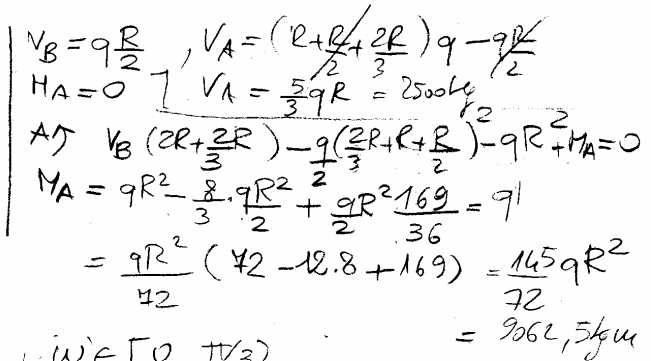 V_B = qR/2 , V_A = (R + R/2 + 2R/3) q − qR/2
H_A = 0 V_A = 5/3 qR = 2500 kg
A↑ V_B (2R + 2/3 R) − q/2 (2/3 R + R + R/2)² − qR² + M_A = 0
M_A = qR² − 8/3 · qR²/2 + q/2 R² 169/36 = q
= qR²/72 (72 − 12.8 + 169) = 145/72 qR²
= 9062,5 kgm